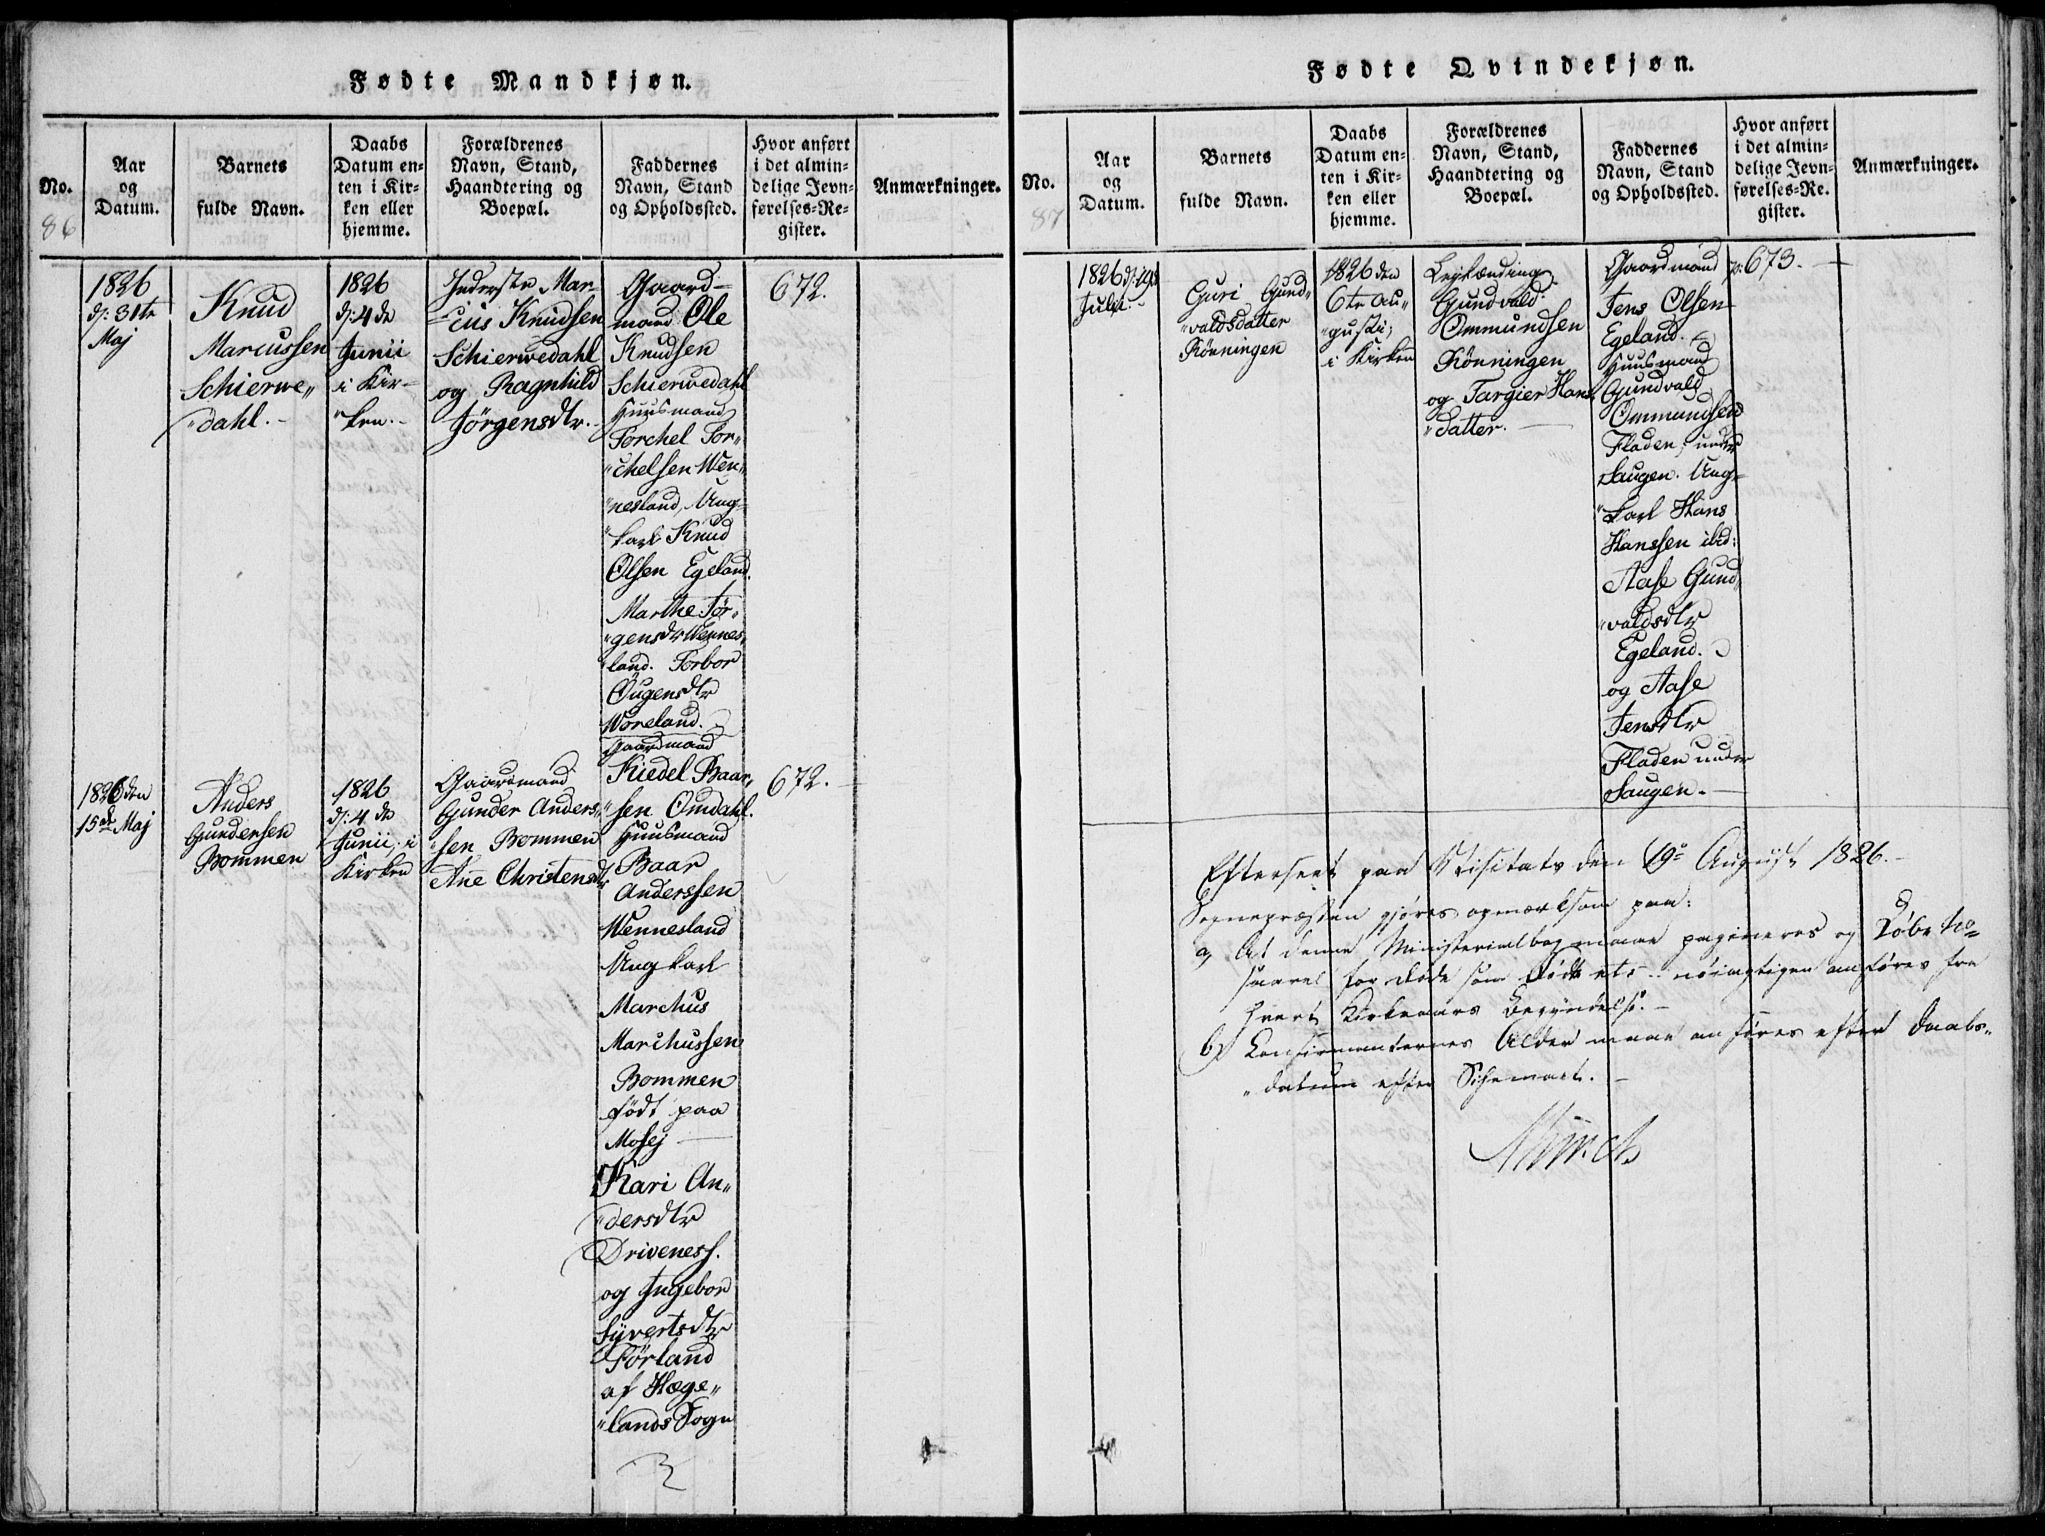 Fødte Mandkjøn.
No.
Aar
og
Datum.
Barnets
fulde Navn.
Daabs
Datum en-
ten i Kir-
ken eller
hjemme.
Forældrenes
Navn, Stand,
Haandtering og
Boepæl.
Faddernes
Navn, Stand
og Opholdssted.
Hvor anført
i det almin-
delige Jevn-
førelses-Re-
gister.
Anmærkninger.
86
1826
d: 31te
Maj
Knud
Marcussen
Schierwe„
„dahl.-
1826
d: 4de
Junii
i Kir-
„ken.-
Inderste Mar-
-cus Knudsen
Schierwedahl
og Ragnhild
Jörgensdtr.-
Gaard-
mand Ole
Knudsen
Schierwedahl
Huusmand
Torchel Tor„
„chelsen Wen„
„nesland, Ung-
„karl Knud
Olsen Egeland.
Marthe Jör„
„gensdtr Wennes„
„land. Torbor
Ougensdtr
Wöreland.
672.
1826 den
15de Maj
Anders
Gundersen
Bommen
1826
d: 4de
Junii, i
Kirken
Gaardmand
Gunder Anders„
„sen Bommen
Ane Christensdtr
Gaardmand
Kiedel Baar„
„sen Omdahl.
Huusmand
Baar
Anderssen
Wennesland
Ungkarl
Marchus
Marchussen
Bommen
födt paa
Mosej
Kari An„
„dersdtr
Driveness.
og Ingebor
Syvertsdtr
Förland
af Hæge„
„lands Sogn
672.
Fødte Qvindekjøn.
No.
Aar
og
Datum.
Barnets
fulde Navn.
Daabs
Datum en-
ten i Kir-
ken eller
hjemme.
Forældrenes
Navn, Stand,
Haandtering og
Boepæl.
Faddernes
Navn, Stand
og Opholdssted.
Hvor anført
i det almin-
delige Jevn-
førelses-Re-
gister.
Anmærkninger.
87
1826 d:
Julii
Guri Gund„
„valdsdatter
Rönningen
1826 den
6te Au„
„gusti;
i Kirken
Leylænding
Gundvald
Ommundsen
Rönningen
og Targier Hans„
„datter.
Gaardmand
Jens Olsen
Egeland.
Huusmand
Gundvald
Ommundsen
Fladen, under
Haugen. Ung-
„karl Hans
Hanssen ibid:
Aase Gund„
„valdsdtr
Egeland.
og Aase
Jensdtr
Fladen under
Haugen.
p: 673.
Efterseet paa Visitats den 19de August 1826.
Sognepræsten gjøres opmærksom paa:
a) At denne Ministerialbog maae pagineres og Løbe No
saavel for døde som fødte etc: nöiagtigen anføres fra
hvert Kirkeaars Begyndelse.
b) Confirmanternes Alder maae anføres efter Daabs„
„datum efter Schemaet.
Münch